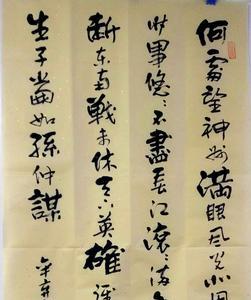 何處望神州滿眼風光北固
事悠々不盡長江滾々流
斷東南戰未休天下英雄誰
生子當如孫仲謀
辛棄